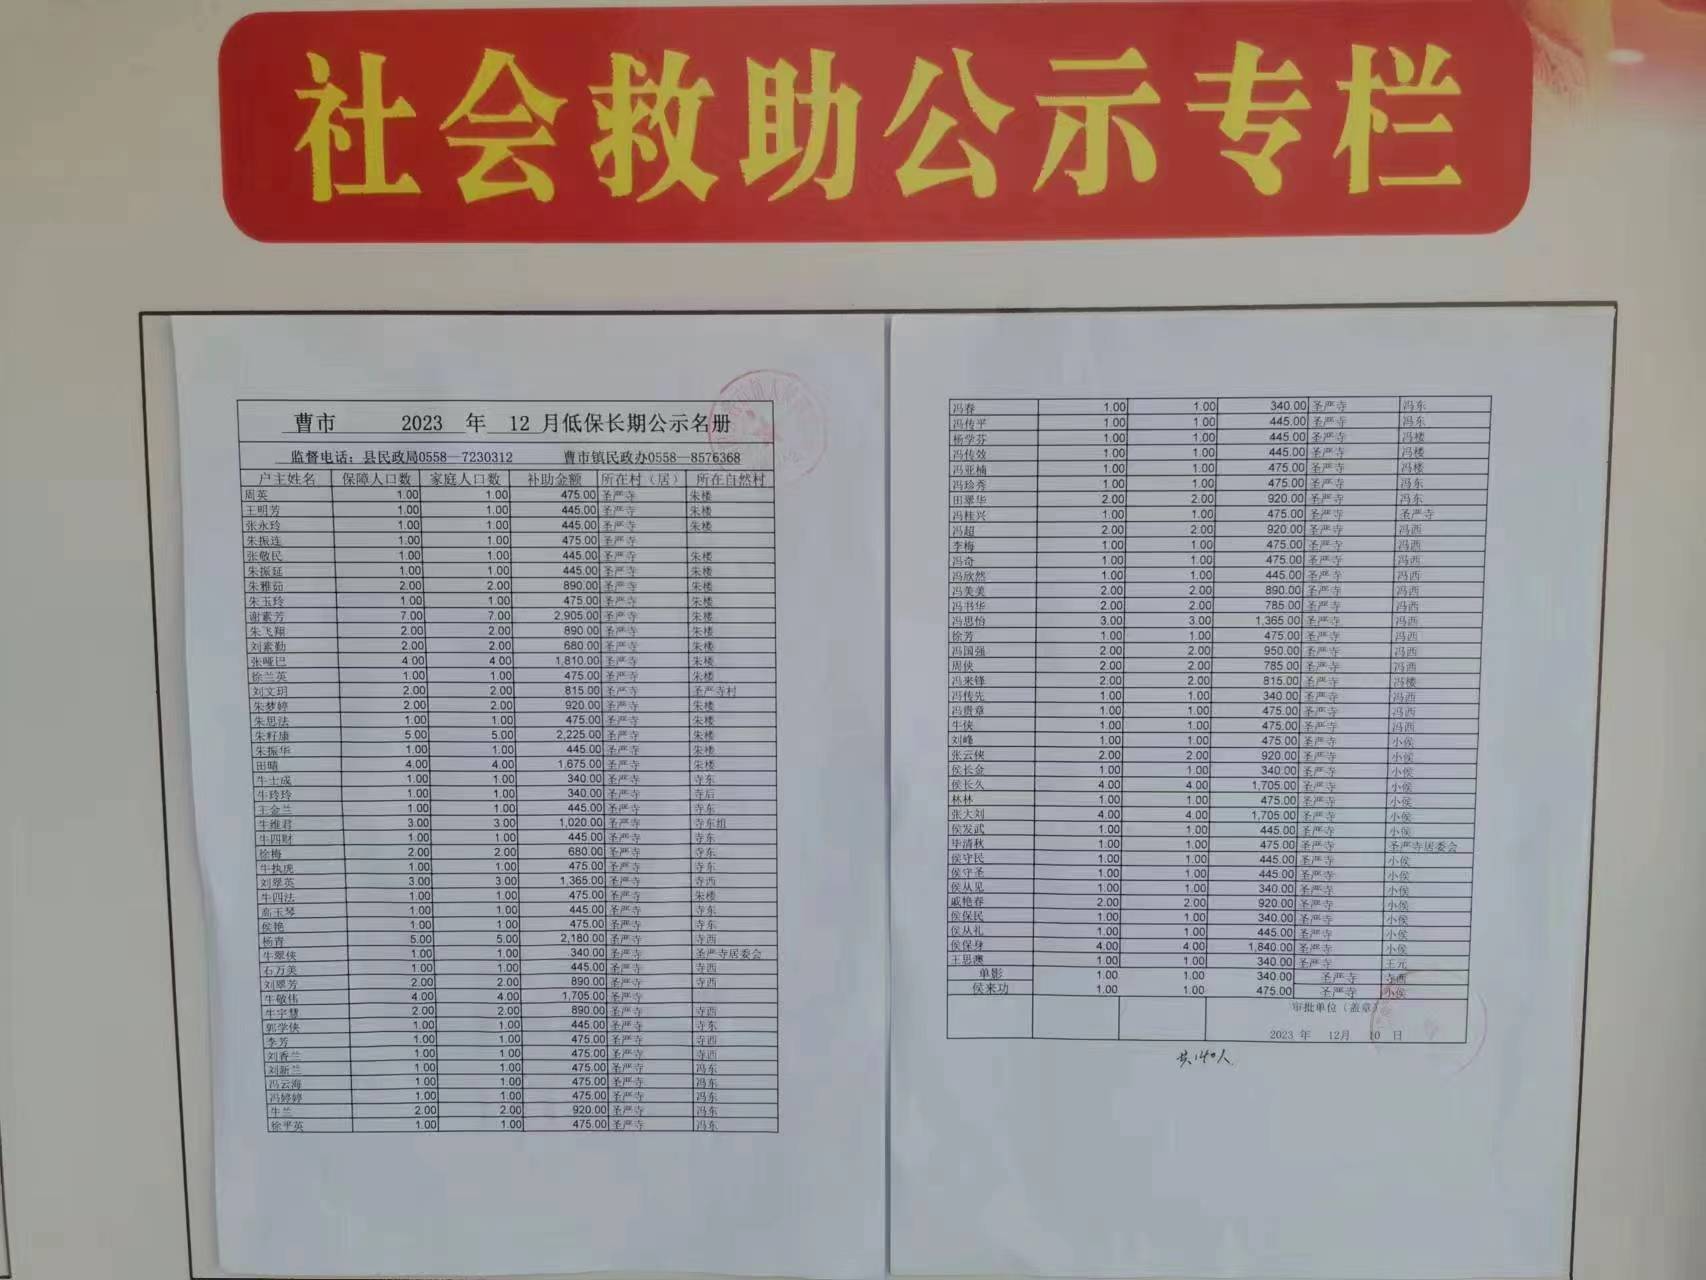 社会救助公示专栏
曹市 2023 年 12 月低保长期公示名册
监督电话：县民政局0558—7230312 曹市镇民政办0558—8576368
户主姓名 保障人口数 家庭人口数 补助金额 所在村（居） 所在自然村
周英 1.00 1.00 475.00 圣严寺 朱楼
王明芳 1.00 1.00 445.00 圣严寺 朱楼
张永玲 1.00 1.00 445.00 圣严寺 朱楼
朱振连 1.00 1.00 475.00 圣严寺
张敬民 1.00 1.00 445.00 圣严寺 朱楼
朱振延 1.00 1.00 445.00 圣严寺 朱楼
朱雅茹 2.00 2.00 890.00 圣严寺 朱楼
朱玉玲 1.00 1.00 475.00 圣严寺 朱楼
谢素芳 7.00 7.00 2,905.00 圣严寺 朱楼
朱飞翔 2.00 2.00 890.00 圣严寺 朱楼
刘素勤 2.00 2.00 680.00 圣严寺 朱楼
张哑巴 4.00 4.00 1,810.00 圣严寺 朱楼
徐兰英 1.00 1.00 475.00 圣严寺 朱楼
刘文玥 2.00 2.00 815.00 圣严寺 圣严寺村
朱梦婷 2.00 2.00 920.00 圣严寺 朱楼
朱思法 1.00 1.00 475.00 圣严寺 朱楼
朱籽康 5.00 5.00 2,225.00 圣严寺 朱楼
朱振华 1.00 1.00 445.00 圣严寺 朱楼
田晴 4.00 4.00 1,675.00 圣严寺 朱楼
牛士成 1.00 1.00 340.00 圣严寺 寺东
牛玲玲 1.00 1.00 340.00 圣严寺 寺后
王金兰 1.00 1.00 445.00 圣严寺 寺东
牛维君 3.00 3.00 1,020.00 圣严寺 寺东组
牛四财 1.00 1.00 445.00 圣严寺 寺东
徐梅 2.00 2.00 680.00 圣严寺 寺东
牛执虎 1.00 1.00 475.00 圣严寺 寺东
刘翠英 3.00 3.00 1,365.00 圣严寺 寺西
牛四法 1.00 1.00 475.00 圣严寺 朱楼
高玉琴 1.00 1.00 445.00 圣严寺 寺东
侯艳 1.00 1.00 475.00 圣严寺 寺东
杨青 5.00 5.00 2,180.00 圣严寺 寺西
牛翠侠 1.00 1.00 340.00 圣严寺 圣严寺居委会
石万美 1.00 1.00 445.00 圣严寺 寺西
刘翠芳 2.00 2.00 890.00 圣严寺 寺西
牛敬伟 4.00 4.00 1,705.00 圣严寺
牛宇慧 2.00 2.00 890.00 圣严寺 寺西
郭学侠 1.00 1.00 445.00 圣严寺 寺东
李芳 1.00 1.00 475.00 圣严寺 寺西
刘香兰 1.00 1.00 475.00 圣严寺 寺西
刘新兰 1.00 1.00 475.00 圣严寺 冯东
冯云海 1.00 1.00 475.00 圣严寺 冯东
冯婷婷 1.00 1.00 475.00 圣严寺 冯东
牛兰 2.00 2.00 920.00 圣严寺 冯东
徐平英 1.00 1.00 475.00 圣严寺 冯东
冯春 1.00 1.00 340.00 圣严寺 冯东
冯传平 1.00 1.00 445.00 圣严寺 冯东
杨学芬 1.00 1.00 445.00 圣严寺 冯楼
冯传效 1.00 1.00 445.00 圣严寺 冯楼
冯亚楠 1.00 1.00 475.00 圣严寺 冯楼
冯珍秀 1.00 1.00 475.00 圣严寺 冯东
田翠华 2.00 2.00 920.00 圣严寺 冯东
冯桂兴 1.00 1.00 475.00 圣严寺 圣严寺
冯超 2.00 2.00 920.00 圣严寺 冯西
李梅 1.00 1.00 475.00 圣严寺 冯西
冯奇 1.00 1.00 475.00 圣严寺 冯西
冯欣然 1.00 1.00 445.00 圣严寺 冯西
冯美美 2.00 2.00 890.00 圣严寺 冯西
冯书华 2.00 2.00 785.00 圣严寺 冯西
冯思怡 3.00 3.00 1,365.00 圣严寺 冯西
徐芳 1.00 1.00 475.00 圣严寺 冯西
冯国强 2.00 2.00 950.00 圣严寺 冯西
周侠 2.00 2.00 785.00 圣严寺 冯西
冯来锋 2.00 2.00 815.00 圣严寺 冯楼
冯传先 1.00 1.00 340.00 圣严寺 冯西
冯贵章 1.00 1.00 475.00 圣严寺 冯西
牛侠 1.00 1.00 475.00 圣严寺 冯西
刘峰 1.00 1.00 475.00 圣严寺 小侯
张云侠 2.00 2.00 920.00 圣严寺 小侯
侯长金 1.00 1.00 340.00 圣严寺 小侯
侯长久 4.00 4.00 1,705.00 圣严寺 小侯
林林 1.00 1.00 475.00 圣严寺 小侯
张大刘 4.00 4.00 1,705.00 圣严寺 小侯
侯发武 1.00 1.00 445.00 圣严寺 小侯
毕清秋 1.00 1.00 475.00 圣严寺 圣严寺居委会
侯守民 1.00 1.00 445.00 圣严寺 小侯
侯守圣 1.00 1.00 445.00 圣严寺 小侯
侯从见 1.00 1.00 340.00 圣严寺 小侯
戚艳春 2.00 2.00 920.00 圣严寺 小侯
侯保民 1.00 1.00 340.00 圣严寺 小侯
侯从礼 1.00 1.00 445.00 圣严寺 小侯
侯保身 4.00 4.00 1,840.00 圣严寺 小侯
王思澳 1.00 1.00 340.00 圣严寺 王元
单影 1.00 1.00 340.00 圣严寺 寺西
侯来功 1.00 1.00 475.00 圣严寺 小侯
审批单位（盖章）
2023 年 12月 10 日
共140人